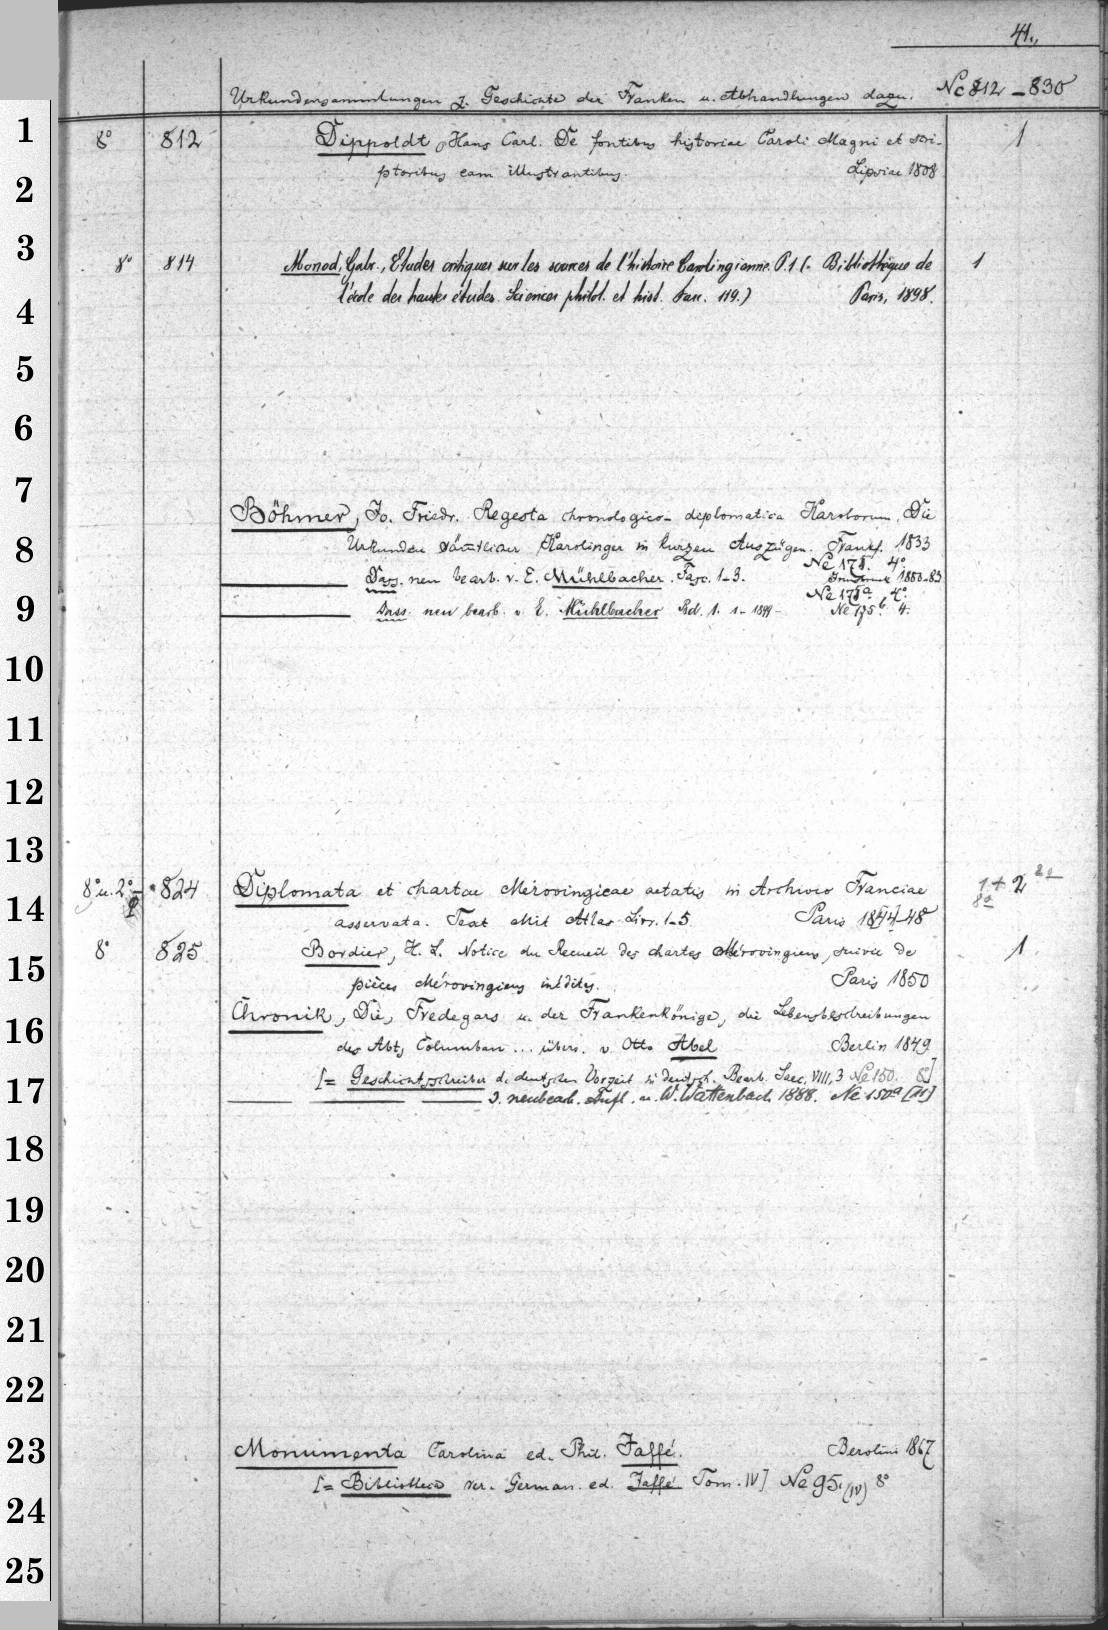 41.
Urkundensammlungen z. Geschichte der Franken u. Abhandlungen dazu. Nc 812 – 830
1
8° 812 Dippoldt, Hans Carl. De fontibus historiae Caroli Magni et scri- 1
2
ptoribus eam illustrantibus. Lipsiae 1808
3
8° 814 Monod, Gabr., Etudes critiques sur les sources de l'histoire Carolingienne. P. 1 (= Bibliothèque de 1
4
l'école des hautes études. Sciences philol. et hist. Fasc. 119.) Paris, 1898.
5
6
7
Böhmer, Jo. Friedr. Regesta chronologico-deplomatica Karolorum. Die
8
Urkunden sämtlicher Karolinger in kurzen Auszügen. Frankf. 1833
Ne 175. 4°
Dass. neu bearb. v. E. Mühlbacher. Fasc. 1-3. Innsbruck 1880-83
Ne 175a 4°.
9
Dass. neu bearb. v. E. Mühlbacher Bd. 1. 1- 1899- Ne 175b. 4.
10
11
12
13
8° u. 2° 824 Diplomata et chartae Merovingicae aetatis in Archivio Franciae 1 + 2
14
8°
asservata. Text Mit Atlas Livr. 1-5 Paris 18[44]-48
8° 825 Bordier, H. L. Notice du Recueil des chartes Mérovingiens, suivie de 1
15
pièces Mérovingiens inédites. Paris 1850
16
Chronik, Die, Fredegars u. der Frankenkönige, die Lebensbeschreibungen
des Abts Columban ... übers. v. Otto Abel Berlin 1849
17
[= Geschichtsschreiber d. deutschen Vorzeit in deutsch. Bearb. Saec. VIII, 3 Ne 150. 8]
2. neubearb. Aufl. v. W. Wattenbach 1888. Ne 150a [11]
18
19
20
21
22
23
Monumenta Carolina ed. Phil. Jaffé. Berolini 1867
[= Bibliotheca rer. German. ed. Jaffé Tom. IV] Ne 95. (IV) 8°
24
25